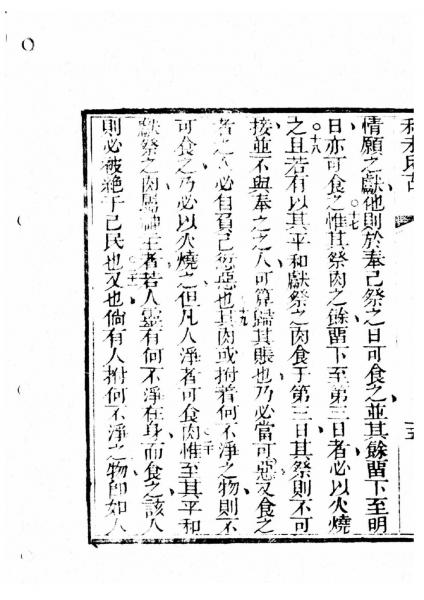 情願之獻他則於奉己祭之日可食之並其餘留下至明
日亦可食之惟其祭肉之餘留下至第三日者必以火燒
之且若有以其平和獻祭之肉食于第三日其祭則不可
接並不與奉之之人可算歸其賬也乃必當可惡又食之
者之人必自負己愆惡也其肉或拊着何不淨之物則不
可食之乃必以火燒之但凡人淨者可食肉惟至其平和
獻祭之肉屬神主者若人靈有何不淨在身而食之該人
則必被絕于己民也又也倘有人拊何不淨之物即如人